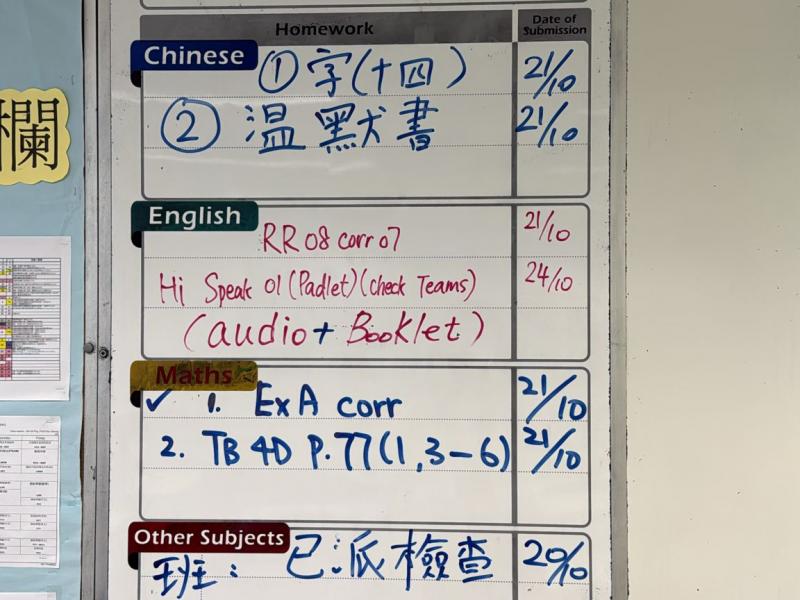 Homework
Date of Submission
Chinese
① 字(十四) 21/10
② 溫默書 21/10
English
RR 08 corr 07 21/10
Hi Speak 01 (Padlet)(check Teams) 24/10
(audio + Booklet)
Maths
✓ 1. Ex A corr 21/10
2. TB 4D P.77(1,3-6) 21/10
Other Subjects
班: 已派檢查 20/10
欄